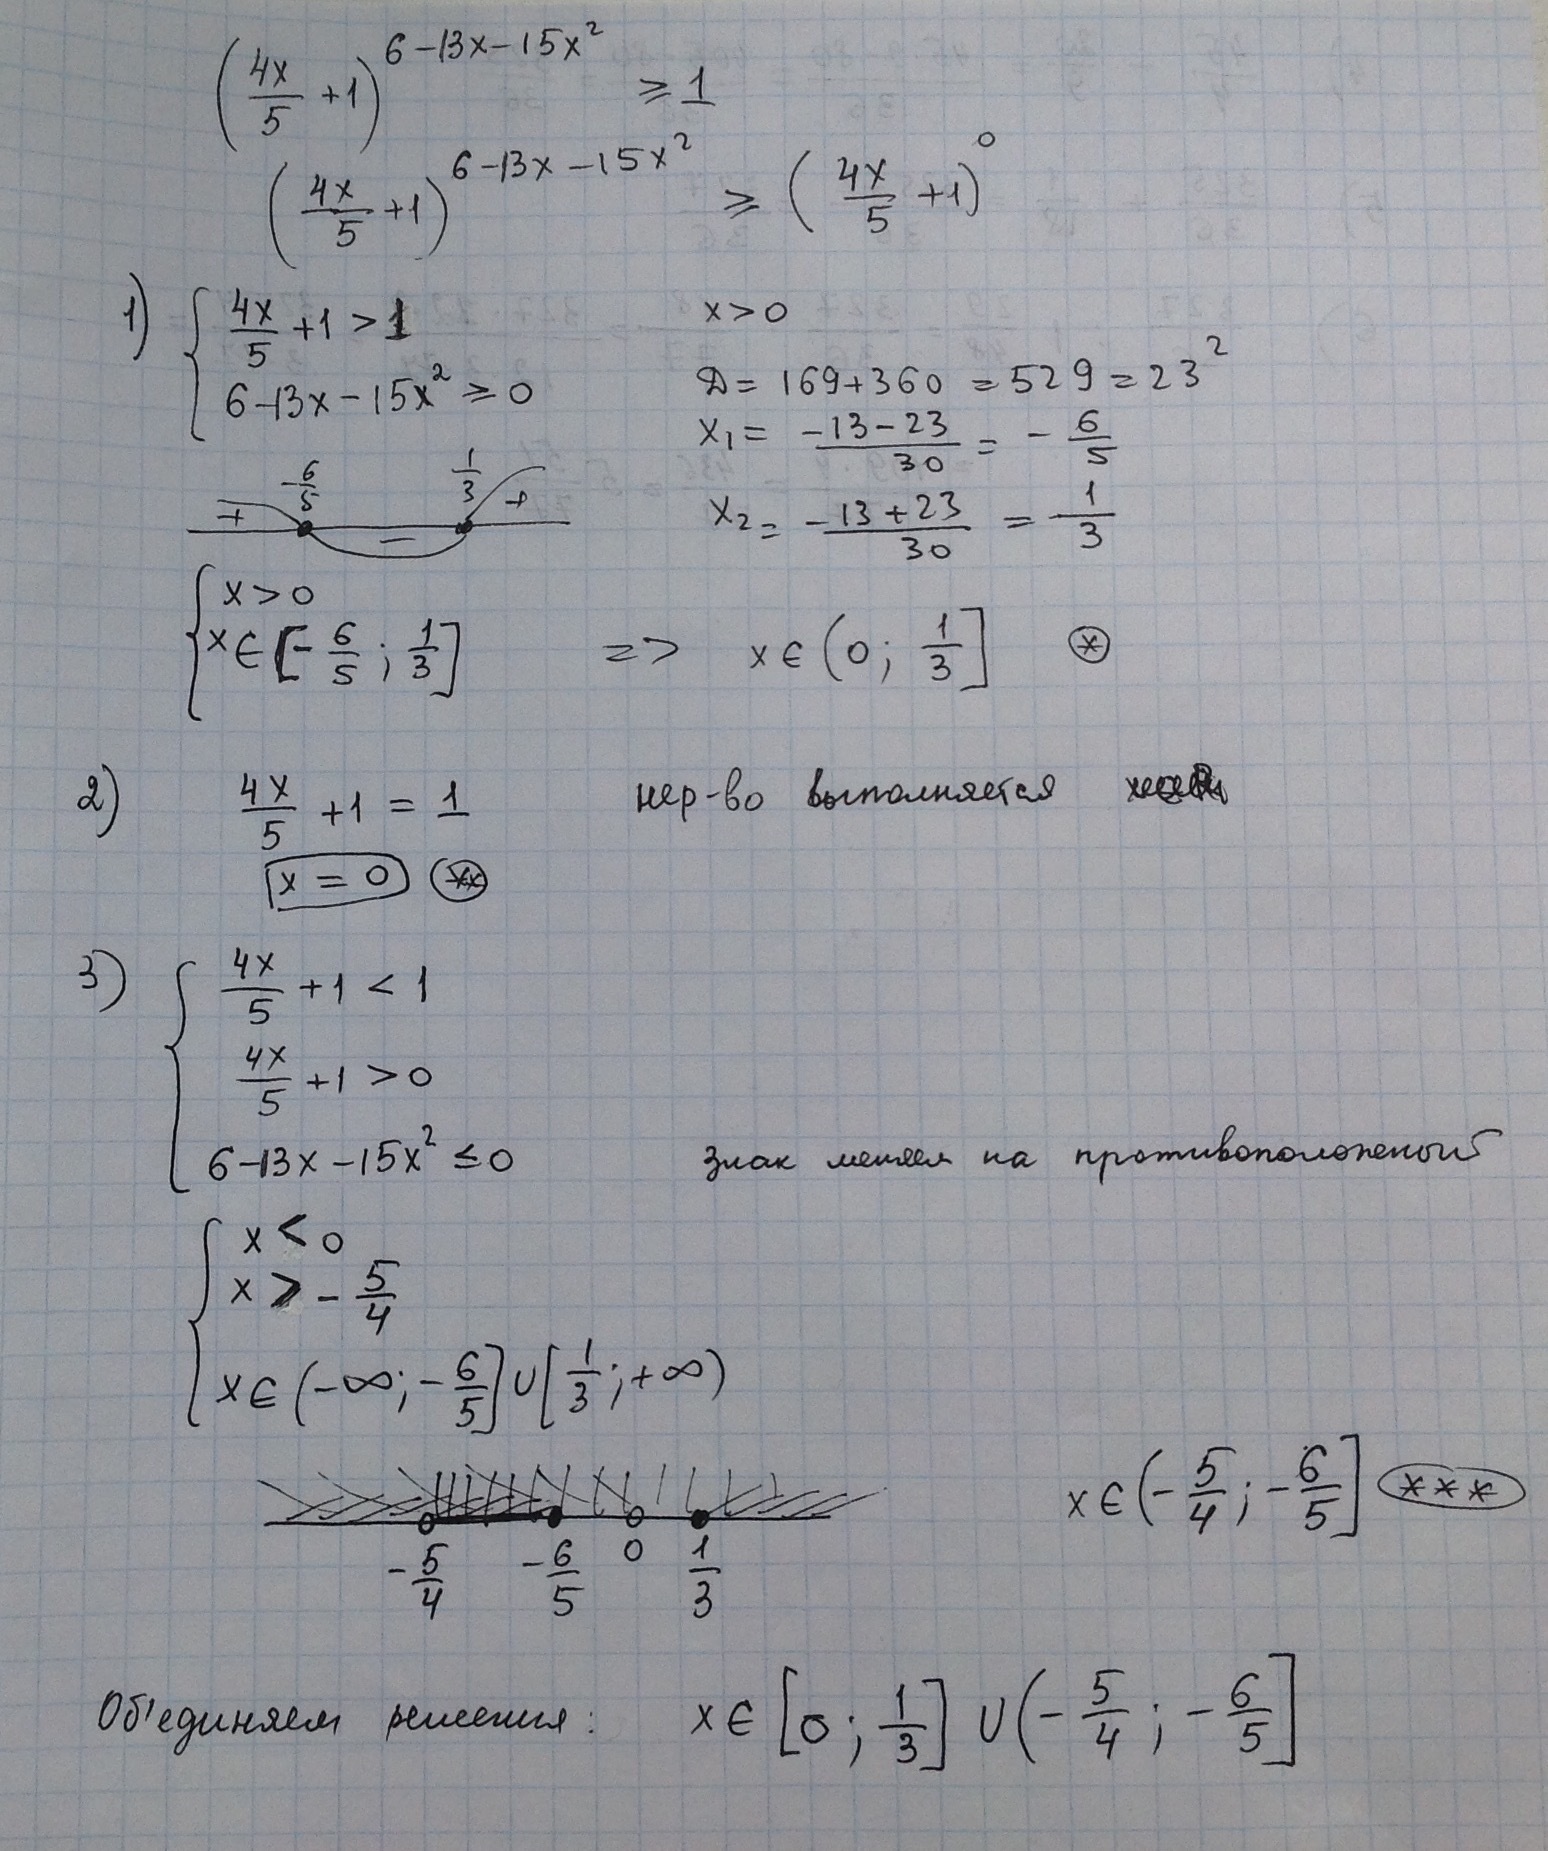 (4x/5 + 1)^(6-13x-15x²) ≥ 1
(4x/5 + 1)^(6-13x-15x²) ≥ (4x/5 + 1)^0
1) { 4x/5 + 1 > 1 x > 0
6-13x-15x² ≥ 0 Д = 169+360 = 529 = 23²
x₁ = (-13-23)/30 = -6/5
-6/5 1/3
+ - +
x₂ = (-13+23)/30 = 1/3
{ x > 0
x ∈ [-6/5; 1/3] => x ∈ (0; 1/3] (*)
2) 4x/5 + 1 = 1 нер-во выполняется
x = 0 (**)
3) { 4x/5 + 1 < 1
4x/5 + 1 > 0
6-13x-15x² ≤ 0 знак меняем на противоположеный
{ x < 0
x > -5/4
x ∈ (-∞; -6/5] ∪ [1/3; +∞)
x ∈ (-5/4; -6/5] (***)
-5/4 -6/5 0 1/3
Об'единяем решения: x ∈ [0; 1/3] ∪ (-5/4; -6/5]